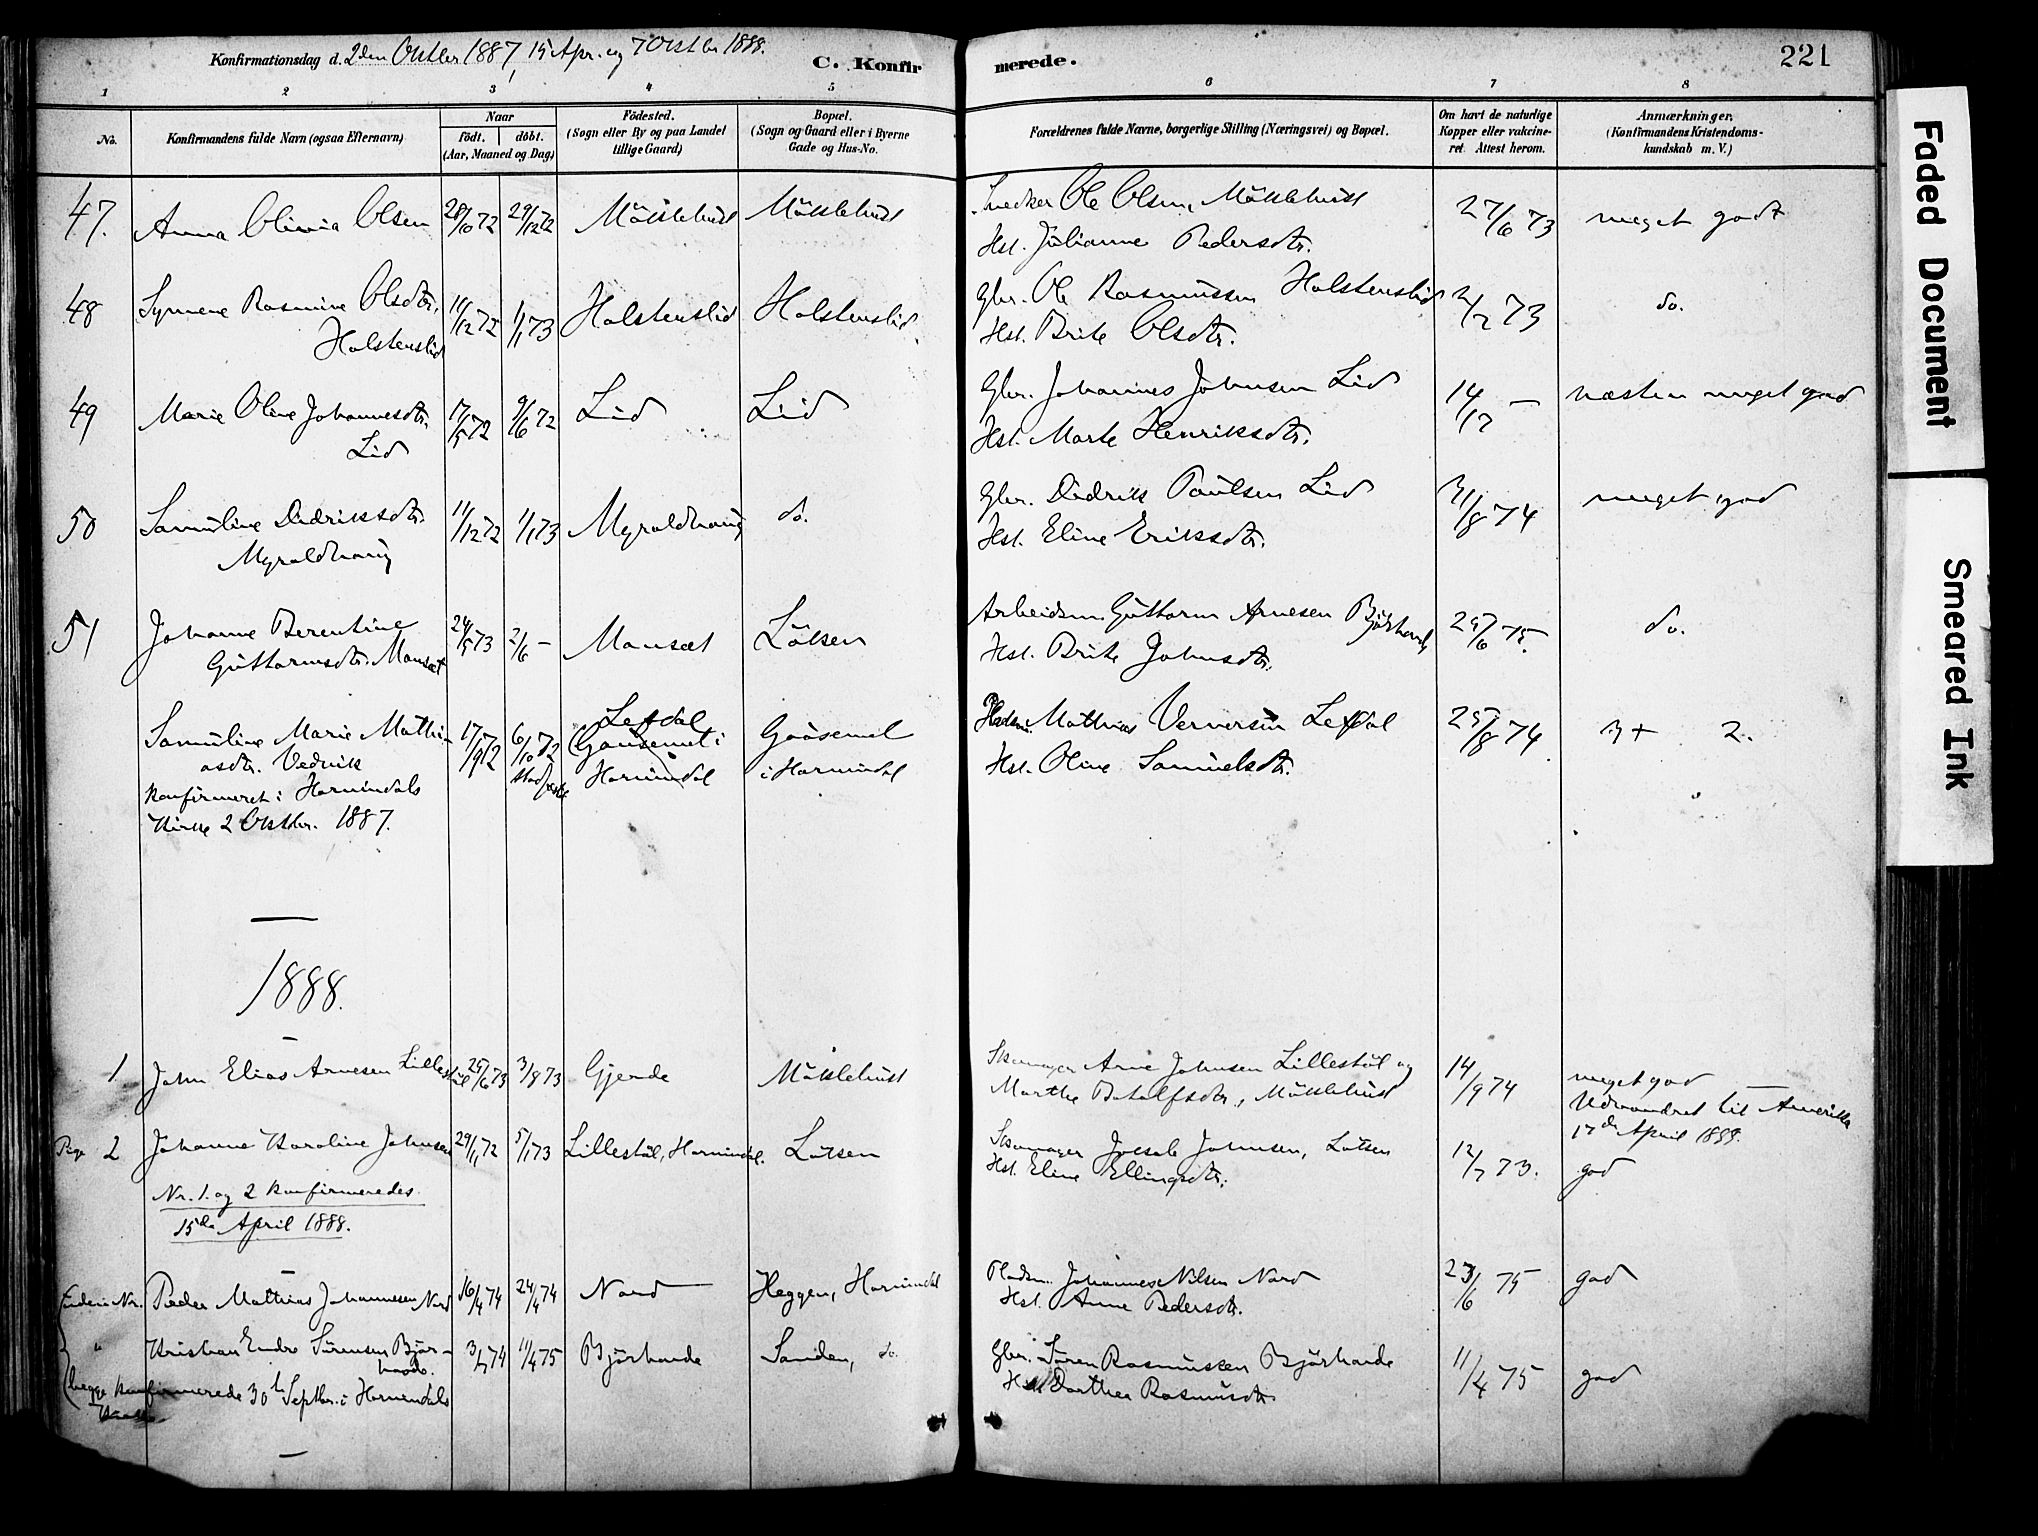 Konfirmationsdag d. 2den Oktbr 1887, 15 Apr. og 7 Oktbr 1888.
C. Konfirmerede.
221
1 2 3 4 5 6 7 8
No.
Konfirmandens fulde Navn (ogsaa Efternavn)
Naar
født. døbt.
(Aar, Maaned og Dag)
Fødested.
(Sogn eller By og paa Landet
tillige Gaard)
Bopæl.
(Sogn og Gaard eller i Byerne
Gade og Hus-No.
Forældrenes fulde Navne, borgerlige Stilling (Næringsvei) og Bopæl.
Om havt de naturlige
Kopper eller vakcine-
ret. Attest herom.
Anmærkninger.
(Konfirmandens Kristendoms-
kundskab m. V.)
47. Anna Olivia Olsen 28/10 72 29/12 72 Möklebust Möklebust Snedker Ole Olsen, Möklebust 27/6 73 meget godt
Hst. Julianne Pedersdtr.
48 Synneve Rasmine Olsdtr. 11/12 72 1/1 73 Holstenslid Holstenslid Gbr. Ole Rasmussen Holstenslid 2/7 73 do.
Holstenslid Hst. Brite Olsdtr.
49 Marie Oline Johannesdtr. 17/5 72 9/6 72 Lid Lid Gbr. Johannes Johnsen Lid 14/12 – næsten meget god
Lid Hst. Marte Henriksdtr.
50 Samuline Didriksdtr. 11/12 72 1/1 73 Myroldhaug do. Gbr. Didrik Paulsen Lid 31/8 74 meget god
Myroldhaug Hst. Eline Eriksdtr.
51 Johanne Berentine 24/5 73 2/6 – Monsæt Lötsen Arbeidsm. Guttorm Arnesen Björhovde 25/6 75. do.
Guttormsdtr. Monsæt Hst. Brite Johnsdtr.
Samuline Marie Mathi- 17/9 72 6/10 72 Lefdal Gaasemel Pladsm. Mathias Vernersen Lefdal 25/8 74 3+ 2.
asdtr. Vedvik Gaasemel i i Hornindal Hst. Oline Samuelsdtr.
konfirmeret i Hornindals Hornindal
Kirke 2 Oktbr. 1887.
1888.
1 John Elias Arnesen Lillestöl 25/6 73 3/8 73 Gjerde Möklebust Skomager Arne Johnsen Lillestöl og 14/9 74 meget god
Marthe Botolfsdtr., Möklebust Udvandret til Amerika
17de April 1888.
Pige 2 Johanne Karoline Johnsen 29/11 72 5/1 73 Lillestöl, Hornindal. Lötsen Skomager Johnsen, Lötsen 12/7 73. god
Hst. Eline Ellingsdtr.
Nr. 1. og 2 konfirmeredes
15de April 1888.
Uden Nr. Peder Mathias Johannessen Nord 16/4 74 24/4 74 Nord Heggen, Hornindal Pladsm. Johannes Nilsen Nord 23/6 75 god
Hst. Anne Pedersdtr.
" Kristian Endre Sörensen Björ- 3/1 74 11/4 75 Björhovde Sanden, do. Gbr. Sören Rasmussen Björhovde 11/4 75 god
hovde. Hst. Dorthea Rasmusdtr.
begge konfirmerede 30te Septbr. i Hornindals
Kirke
Faded Document
Smeared Ink